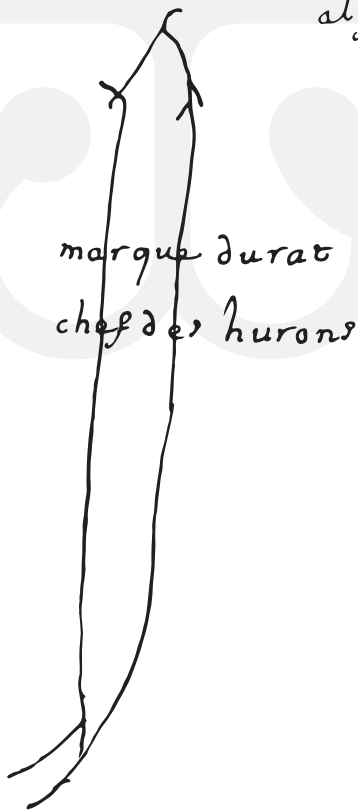 al
marque durat
chef des hurons